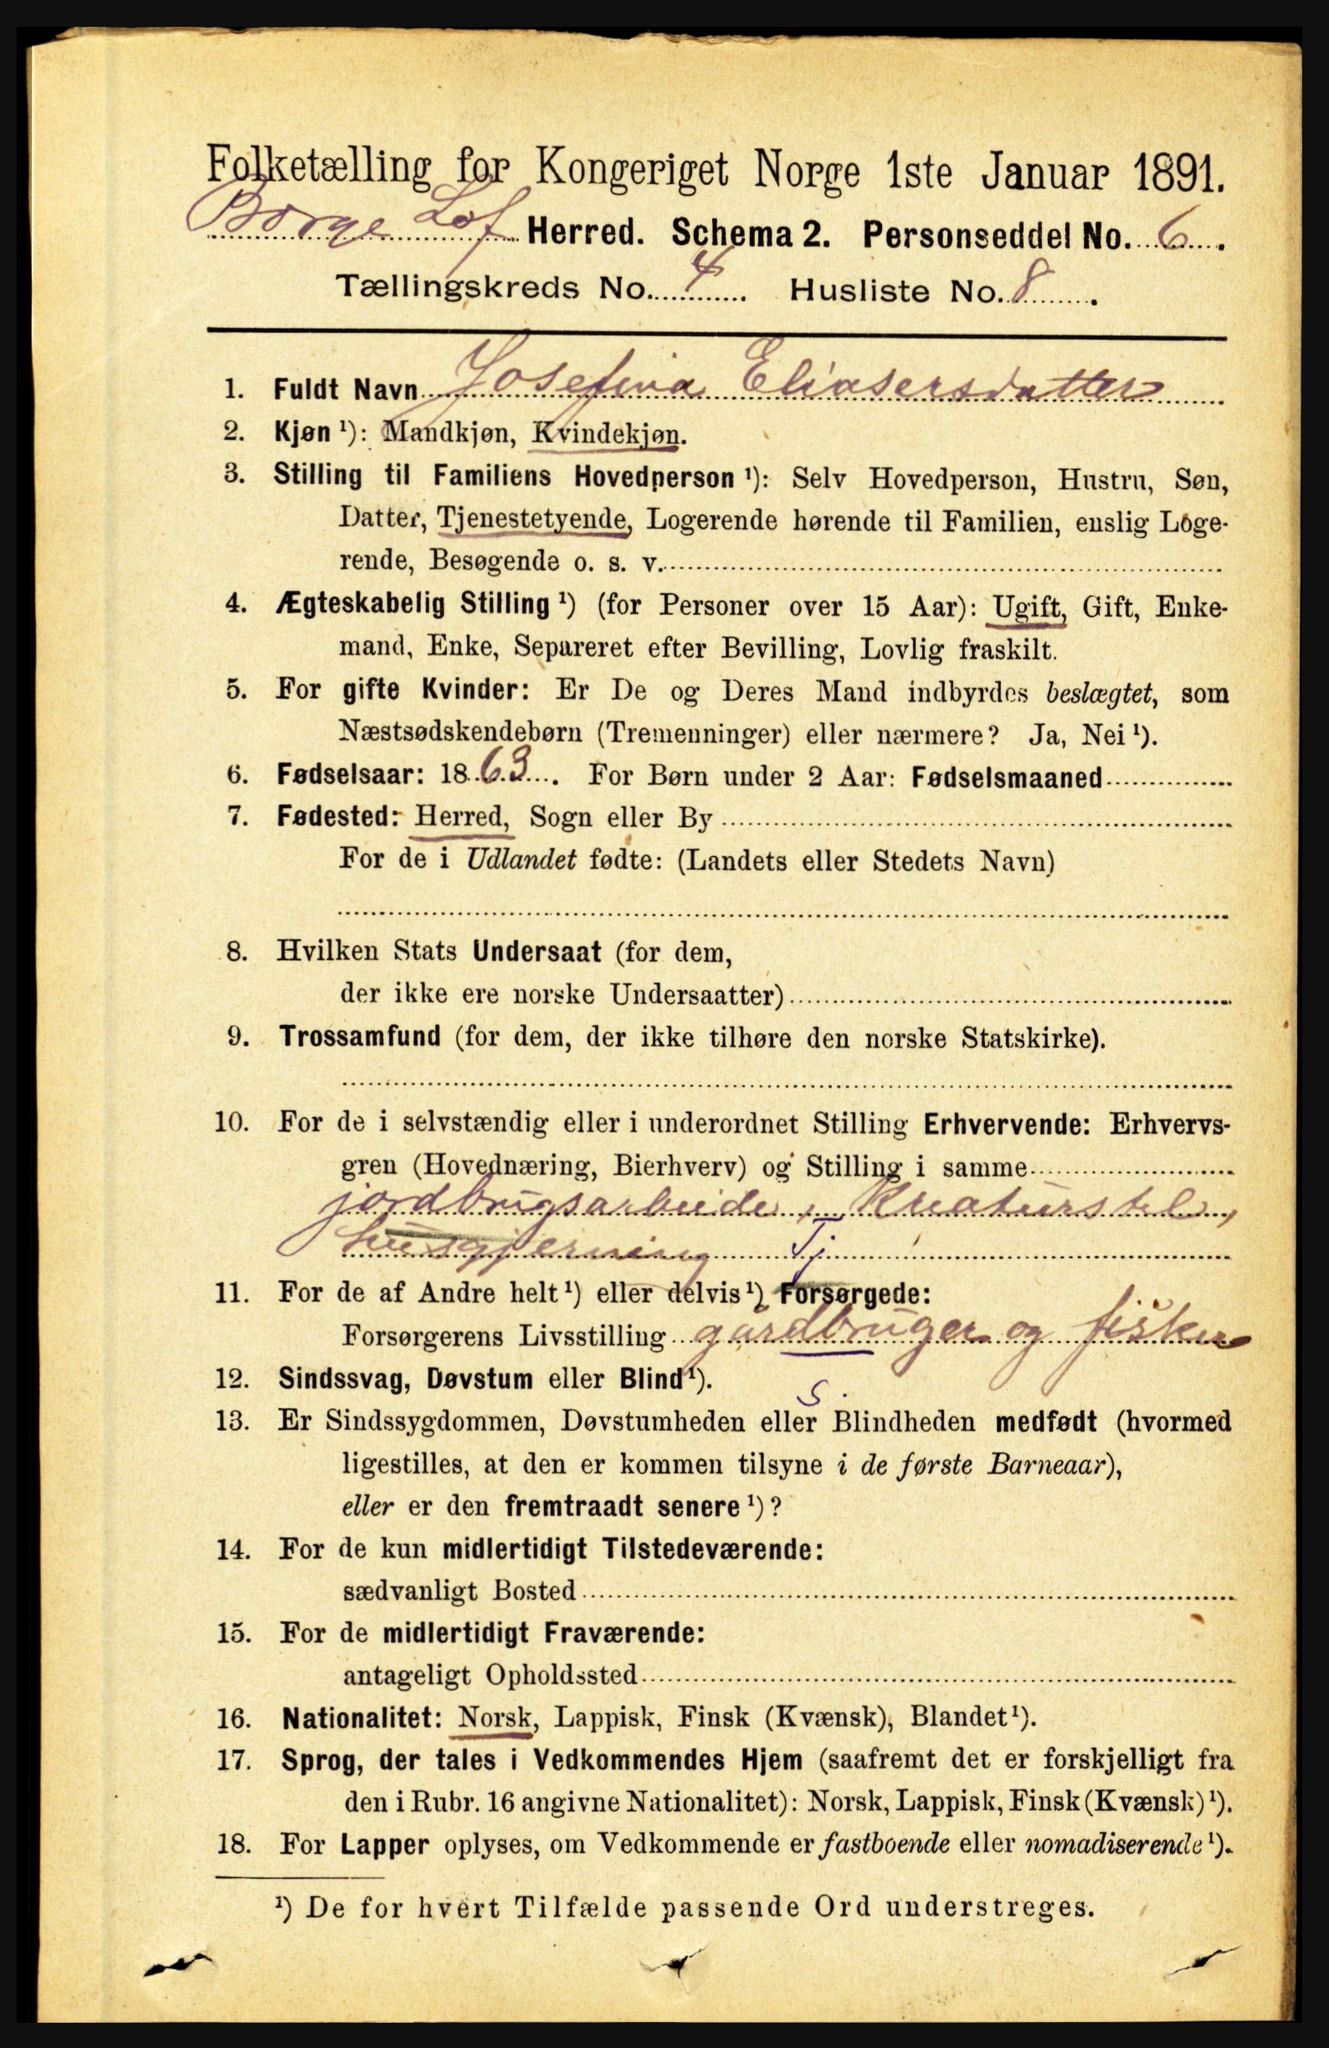 Folketælling for Kongeriget Norge 1ste Januar 1891.
Borge Lof Herred. Schema 2. Personseddel No. 6.
Tællingskreds No. 4. Husliste No. 8.
1. Fuldt Navn Josefina Eliasersdatter
2. Kjøn ¹): Mandkjøn, Kvindekjøn.
3. Stilling til Familiens Hovedperson ¹): Selv Hovedperson, Hustru, Søn,
Datter, Tjenestetyende, Logerende hørende til Familien, enslig Loge-
rende, Besøgende o. s. v.
4. Ægteskabelig Stilling ¹) (for Personer over 15 Aar): Ugift, Gift, Enke-
mand, Enke, Separeret efter Bevilling, Lovlig fraskilt.
5. For gifte Kvinder: Er De og Deres Mand indbyrdes beslægtet, som
Næstsødskendebørn (Tremenninger) eller nærmere? Ja, Nei ¹).
6. Fødselsaar: 1863. For Børn under 2 Aar: Fødselsmaaned
7. Fødested: Herred, Sogn eller By
For de i Udlandet fødte: (Landets eller Stedets Navn)
8. Hvilken Stats Undersaat (for dem,
der ikke ere norske Undersaatter)
9. Trossamfund (for dem, der ikke tilhøre den norske Statskirke).
10. For de i selvstændig eller i underordnet Stilling Erhvervende: Erhvervs-
gren (Hovednæring, Bierhverv) og Stilling i samme
jordbrugsarbeide, Kreaturstel,
husgjerning Tj
11. For de af Andre helt ¹) eller delvis ¹) Forsørgede:
Forsørgerens Livsstilling gårdbruger og fisker
12. Sindssvag, Døvstum eller Blind ¹).
S.
13. Er Sindssygdommen, Døvstumheden eller Blindheden medfødt (hvormed
ligestilles, at den er kommen tilsyne i de første Barneaar),
eller er den fremtraadt senere ¹)?
14. For de kun midlertidigt Tilstedeværende:
sædvanligt Bosted
15. For de midlertidigt Fraværende:
antageligt Opholdssted
16. Nationalitet: Norsk, Lappisk, Finsk (Kvænsk), Blandet ¹).
17. Sprog, der tales i Vedkommendes Hjem (saafremt det er forskjelligt fra
den i Rubr. 16 angivne Nationalitet): Norsk, Lappisk, Finsk (Kvænsk) ¹).
18. For Lapper oplyses, om Vedkommende er fastboende eller nomadiserende ¹).
¹) De for hvert Tilfælde passende Ord understreges.